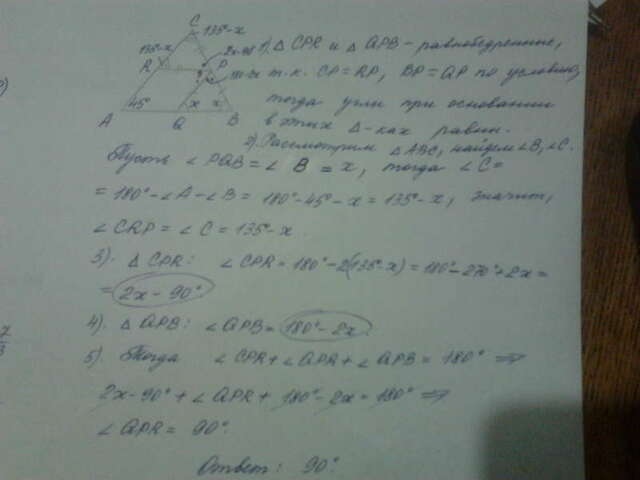 C 135°-x
135°-x
R
2x-90°
P
180°-2x
?
45°
x x
A Q B
1). △ CPR и △ QPB - равнобедренные,
т.к. CP = RP, BP = QP по условию,
тогда углы при основании
в этих △-ках равны.
2). Рассмотрим △ABC, найдем ∠B, ∠C.
Пусть ∠PQB = ∠ B = x, тогда ∠C =
= 180° - ∠A - ∠B = 180° - 45° - x = 135° - x, значит,
∠CRP = ∠ C = 135° - x.
3). △ CPR: ∠CPR = 180° - 2(135° - x) = 180° - 270° + 2x =
= 2x - 90°
4). △ QPB: ∠QPB = 180° - 2x.
5). Тогда ∠CPR + ∠QPR + ∠QPB = 180° ⇒
2x - 90° + ∠QPR + 180° - 2x = 180° ⇒
∠QPR = 90°.
Ответ: 90°.